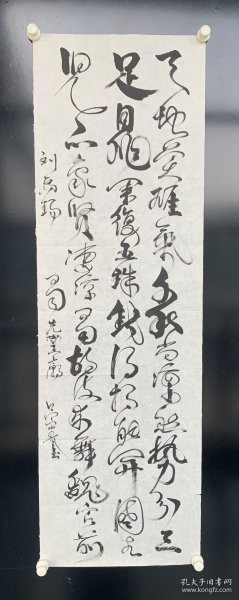 天地英雄氣千秋尚凛然势分三
足鼎業復五銖錢得相能開國生
兒不象賢凄凉蜀故妓来舞魏宫前
刘禹锡 蜀先主廟
孔夫子旧书网